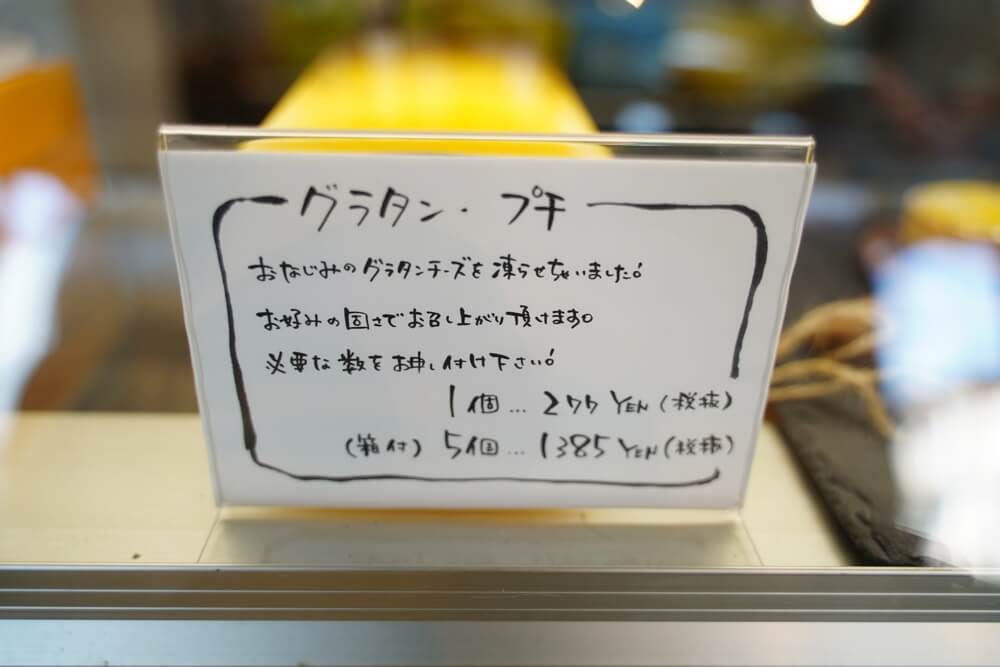 グラタン・プチ
おなじみのグラタンチーズを凍らせちゃいました!
お好みの固さでお召し上がり頂けます。
必要な数をお申し付け下さい!
1個…277 YEN (税抜)
(箱付) 5個…1385 YEN (税抜)